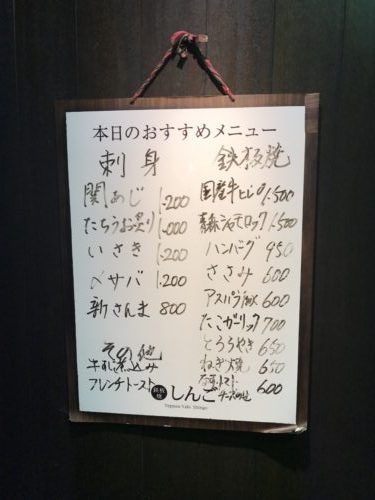 本日のおすすめメニュー
刺身
関あじ 1.200
たちうお炙り 1.000
いさき 1.200
〆サバ 1.200
新さんま 800
その他
牛すじ煮込み
フレンチトースト
鉄板焼
国産牛ヒレ 1.500
青森シャモロック 1.500
ハンバーグ 950
ささみ 600
アスパラ 600
たこガーリック 700
とろろやき 650
ねぎ焼 650
トマト
チーズ 600
鉄板焼 しんご
Teppan-Yaki Shingo